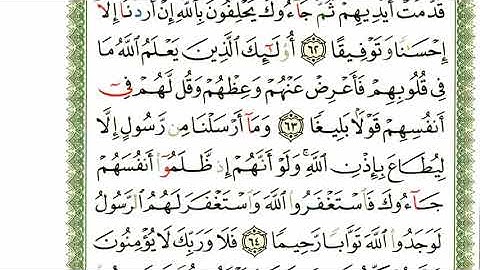 قَدَّمَتْ أَيْدِيهِمْ ثُمَّ جَآءُوكَ يَحْلِفُونَ بِٱللَّهِ إِنْ أَرَدْنَآ إِلَّآ
إِحْسَٰنًا وَتَوْفِيقًا ٦٢ أُو۟لَٰٓئِكَ ٱلَّذِينَ يَعْلَمُ ٱللَّهُ مَا
فِى قُلُوبِهِمْ فَأَعْرِضْ عَنْهُمْ وَعِظْهُمْ وَقُل لَّهُمْ فِىٓ
أَنفُسِهِمْ قَوْلًۢا بَلِيغًا ٦٣ وَمَآ أَرْسَلْنَا مِن رَّسُولٍ إِلَّا
لِيُطَاعَ بِإِذْنِ ٱللَّهِ ۚ وَلَوْ أَنَّهُمْ إِذ ظَّلَمُوٓا۟ أَنفُسَهُمْ
جَآءُوكَ فَٱسْتَغْفَرُوا۟ ٱللَّهَ وَٱسْتَغْفَرَ لَهُمُ ٱلرَّسُولُ
لَوَجَدُوا۟ ٱللَّهَ تَوَّابًا رَّحِيمًا ٦٤ فَلَا وَرَبِّكَ لَا يُؤْمِنُونَ